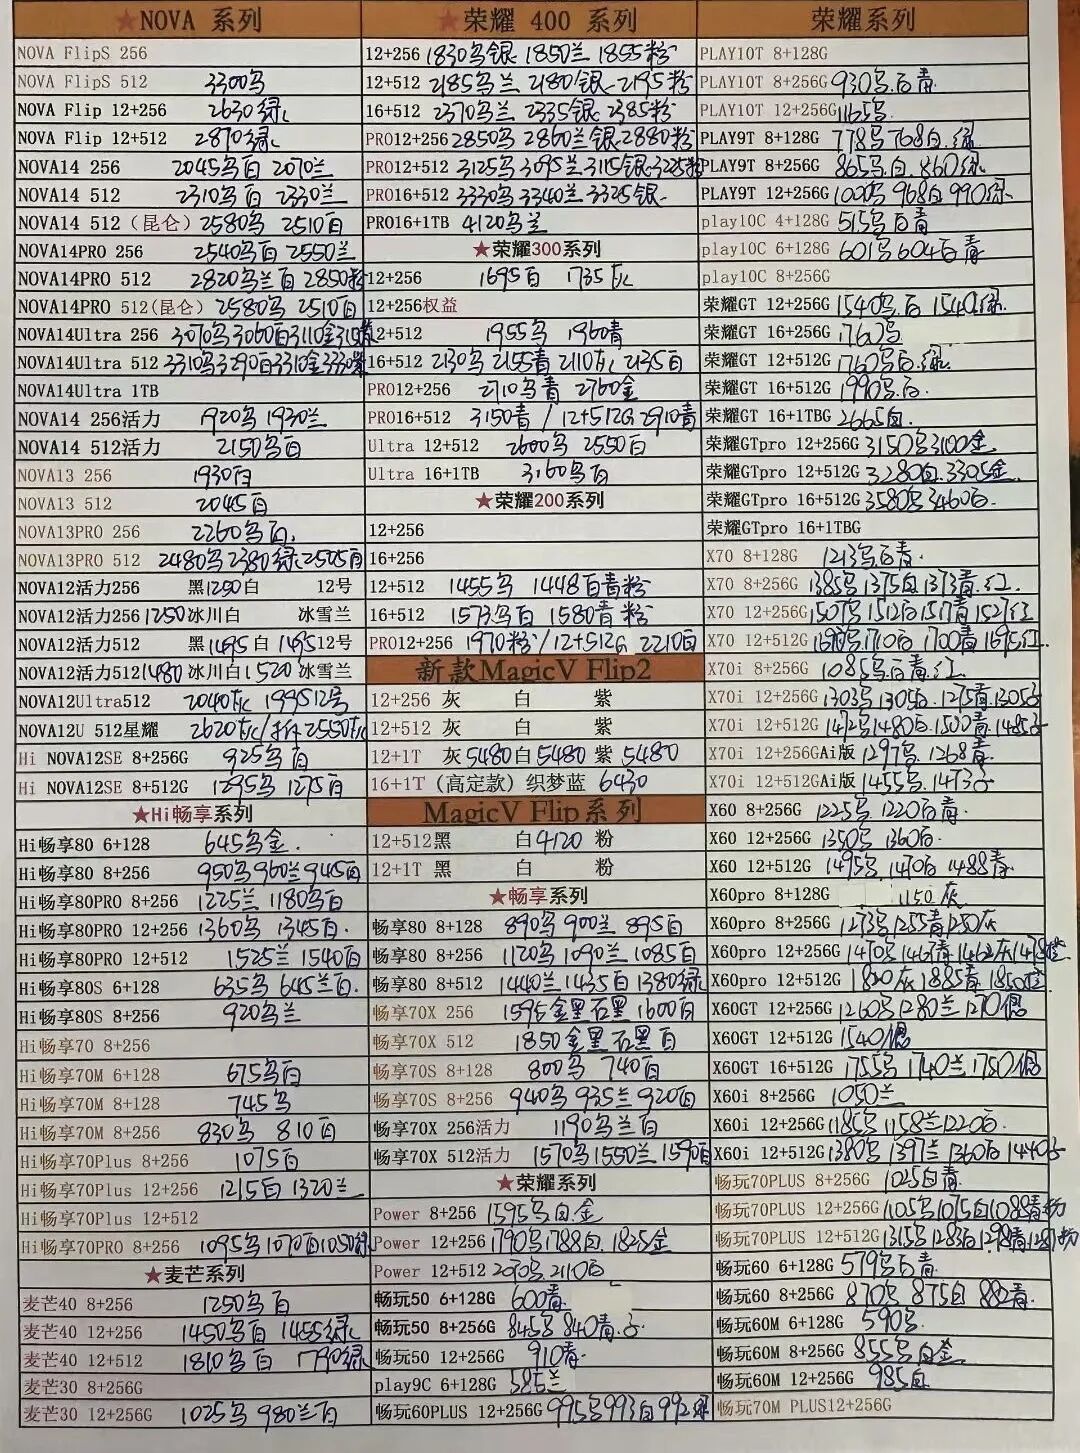 ★NOVA 系列
NOVA FlipS 256
NOVA FlipS 512 3300乌
NOVA Flip 12+256 2630绿
NOVA Flip 12+512 2870绿
NOVA14 256 2045乌白 2070兰
NOVA14 512 2310乌白 2330兰
NOVA14 512（昆仑） 2580乌 2510白
NOVA14PRO 256 2540乌白 2550兰
NOVA14PRO 512 2820乌兰白 2850粉
NOVA14PRO 512(昆仑) 2580乌 2510白
NOVA14Ultra 256 3070乌3060白3110金
NOVA14Ultra 512 3310乌3290白3310金3330
NOVA14Ultra 1TB
NOVA14 256活力 1920乌 1930兰
NOVA14 512活力 2150乌白
NOVA13 256 1930白
NOVA13 512 2045白
NOVA13PRO 256 2260乌白
NOVA13PRO 512 2480乌2380绿2505白
NOVA12活力256 黑1250白 12号
NOVA12活力256 1250冰川白 冰雪兰
NOVA12活力512 黑1495白1495 12号
NOVA12活力512 1480冰川白1520冰雪兰
NOVA12Ultra512 2040灰 1995 12号
NOVA12U 512星耀 2620灰/拆2550灰
Hi NOVA12SE 8+256G 925乌白
Hi NOVA12SE 8+512G 1295乌 1275白
★Hi畅享系列
Hi畅享80 6+128 645乌金.
Hi畅享80 8+256 950乌960兰945白
Hi畅享80PRO 8+256 1225兰 1180乌白
Hi畅享80PRO 12+256 1360乌 1345白.
Hi畅享80PRO 12+512 1525兰 1540白
Hi畅享80S 6+128 635乌 645兰白.
Hi畅享80S 8+256 920乌兰
Hi畅享70 8+256
Hi畅享70M 6+128 675乌白
Hi畅享70M 8+128 745乌
Hi畅享70M 8+256 830乌 810白
Hi畅享70Plus 8+256 1075白
Hi畅享70Plus 12+256 1215白 1320兰
Hi畅享70Plus 12+512
Hi畅享70PRO 8+256 1095乌1070白1050绿
★麦芒系列
麦芒40 8+256 1250乌白
麦芒40 12+256 1450乌白 1455绿
麦芒40 12+512 1810乌白 1790绿
麦芒30 8+256G
麦芒30 12+256G 1025乌 980兰白
★荣耀 400 系列
12+256 1830乌银 1850兰 1855粉
12+512 2185乌兰 2180银 2195粉
16+512 2370乌兰 2335银 2385粉
PRO12+256 2850乌 2860兰银2880粉
PRO12+512 3125乌3095兰3115银3225粉
PRO16+512 3330乌3340兰 3325银
PRO16+1TB 4120乌兰
★荣耀300系列
12+256 1695白 1735灰
12+256权益
12+512 1955乌 1960青
16+512 2130乌 2155青 2110灰 2135白
PRO12+256 2710乌青 2760金
PRO16+512 3150青 / 12+512G 2910青
Ultra 12+512 2600乌 2550白
Ultra 16+1TB 3160乌白
★荣耀200系列
12+256
16+256
12+512 1455乌 1448白青粉
16+512 1573乌白 1580青粉
PRO12+256 1970粉/12+512G 2210白
新款MagicV Flip2
12+256 灰 白 紫
12+512 灰 白 紫
12+1T 灰5480白5480 紫 5480
16+1T（高定款）织梦蓝 6430
MagicV Flip系列
12+512黑 白4120 粉
12+1T 黑 白 粉
★畅享系列
畅享80 8+128 890乌 900兰 895白
畅享80 8+256 1120乌 1090兰 1085白
畅享80 8+512 1440兰 1435白 1380绿
畅享70X 256 1595金黑石黑 1600白
畅享70X 512 1850金黑石黑白
畅享70S 8+128 800乌 740白
畅享70S 8+256 940乌 935兰 920白
畅享70X 256活力 1190乌兰白
畅享70X 512活力 1570乌1550兰 1590白
★荣耀系列
Power 8+256 1595乌白金
Power 12+256 1790乌1788白.1825金
Power 12+512 2090乌.2110白
畅玩50 6+128G 600青.
畅玩50 8+256G 845乌 840青.子
畅玩50 12+256G 910青.
play9C 6+128G 585兰
畅玩60PLUS 12+256G 995乌993白992绿
荣耀系列
PLAY10T 8+128G
PLAY10T 8+256G 930乌白青.
PLAY10T 12+256G 1165乌
PLAY9T 8+128G 778乌768白.绿
PLAY9T 8+256G 865乌.白.860绿
PLAY9T 12+256G 1020乌 968白 990绿
play10C 4+128G 515乌白青
play10C 6+128G 601乌604白青
play10C 8+256G
荣耀GT 12+256G 1540乌.白 1540绿
荣耀GT 16+256G 1760乌
荣耀GT 12+512G 1760乌白.绿
荣耀GT 16+512G 1990乌.白
荣耀GT 16+1TBG 2665白
荣耀GTpro 12+256G 3150乌3100金
荣耀GTpro 12+512G 3280白.3305金
荣耀GTpro 16+512G 3580乌3460白
荣耀GTpro 16+1TBG
X70 8+128G 1213乌.白青.
X70 8+256G 1385乌1375白1373青.红
X70 12+256G 1507乌1512白1517青1527红
X70 12+512G 1698乌1710白1700青1695红
X70i 8+256G 1085乌.白青.红
X70i 12+256G 1303乌1305白.1275青.1305子
X70i 12+512G 1472乌1480白.1500青1485子
X70i 12+256GAi版 1297乌.1268青.
X70i 12+512GAi版 1455乌.1473子
X60 8+256G 1225乌 1220白青.
X60 12+256G 1350乌 1360白
X60 12+512G 1495乌.1470白 1488青.
X60pro 8+128G 1150灰
X60pro 8+256G 1273乌1255青1250灰
X60pro 12+256G 1470乌1467青1462灰
X60pro 12+512G 1820灰1885青 1850
X60GT 12+256G 1260乌1280兰1270
X60GT 12+512G 1540
X60GT 16+512G 1755乌 1740兰1750
X60i 8+256G 1050兰
X60i 12+256G 1185乌1158兰1220白.
X60i 12+512G 1380乌 1397兰 1360白1440子
畅玩70PLUS 8+256G 1025白青.
畅玩70PLUS 12+256G 1105乌1075白1088青粉
畅玩70PLUS 12+512G 1315乌1283白1298青1287粉
畅玩60 6+128G 579乌白青.
畅玩60 8+256G 870乌 875白 882青.
畅玩60M 6+128G 590乌
畅玩60M 8+256G 855乌白金
畅玩60M 12+256G 985白
畅玩70M PLUS12+256G